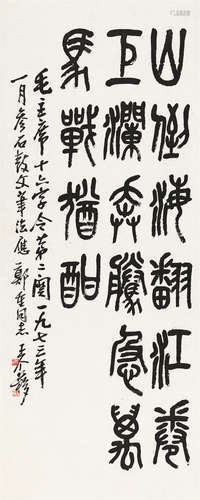 山倒海翻江卷
巨瀾奔騰急萬
馬戰猶酣
毛主席十六字令第二闋一九七三年
一月參石鼓文筆法應 鄭重同志 王个簃